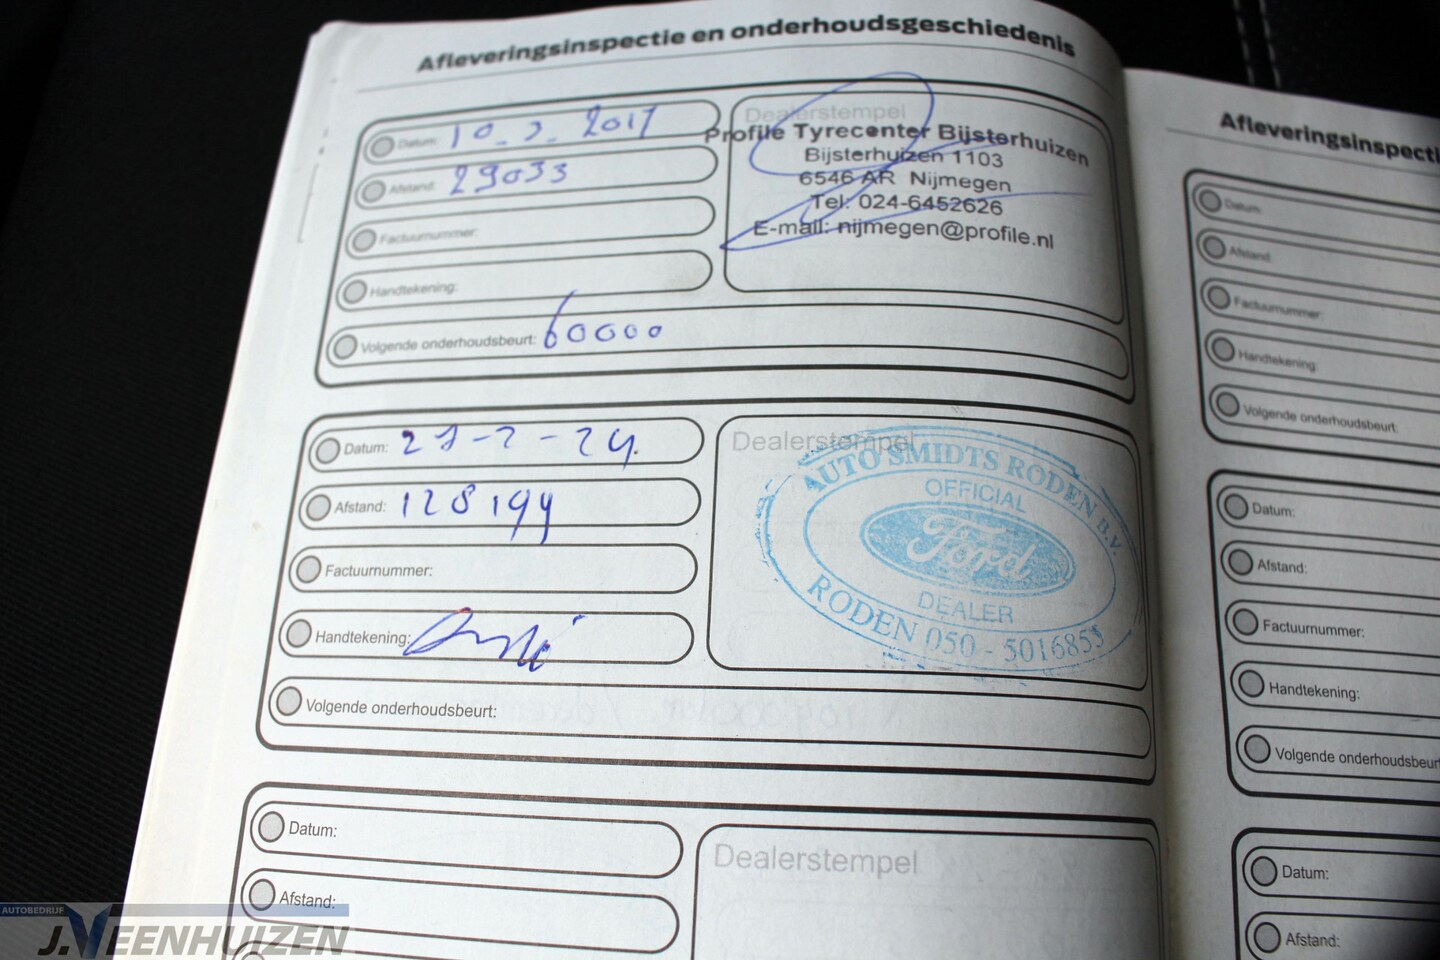 Afleveringsinspectie en onderhoudsgeschiedenis
Datum: 10-2-2017
Afstand: 29033
Factuurnummer:
Handtekening:
Volgende onderhoudsbeurt: 60000
Dealerstempel
Profile Tyrecenter Bijsterhuizen
Bijsterhuizen 1103
6546 AR Nijmegen
Tel: 024-6452626
E-mail: nijmegen@profile.nl
Datum: 27-2-24
Afstand: 128199
Factuurnummer:
Handtekening:
Volgende onderhoudsbeurt:
Dealerstempel
AUTO SMIDTS RODEN B.V.
OFFICIAL
Ford
DEALER
RODEN 050 - 5016855
Datum:
Afstand:
Dealerstempel
Afleveringsinspecti
Datum:
Afstand:
Factuurnummer:
Handtekening:
Volgende onderhoudsbeurt:
Datum:
Afstand:
Factuurnummer:
Handtekening:
Volgende onderhoudsbeurt
Datum:
Afstand:
AUTOBEDRIJF
J.VEENHUIZEN